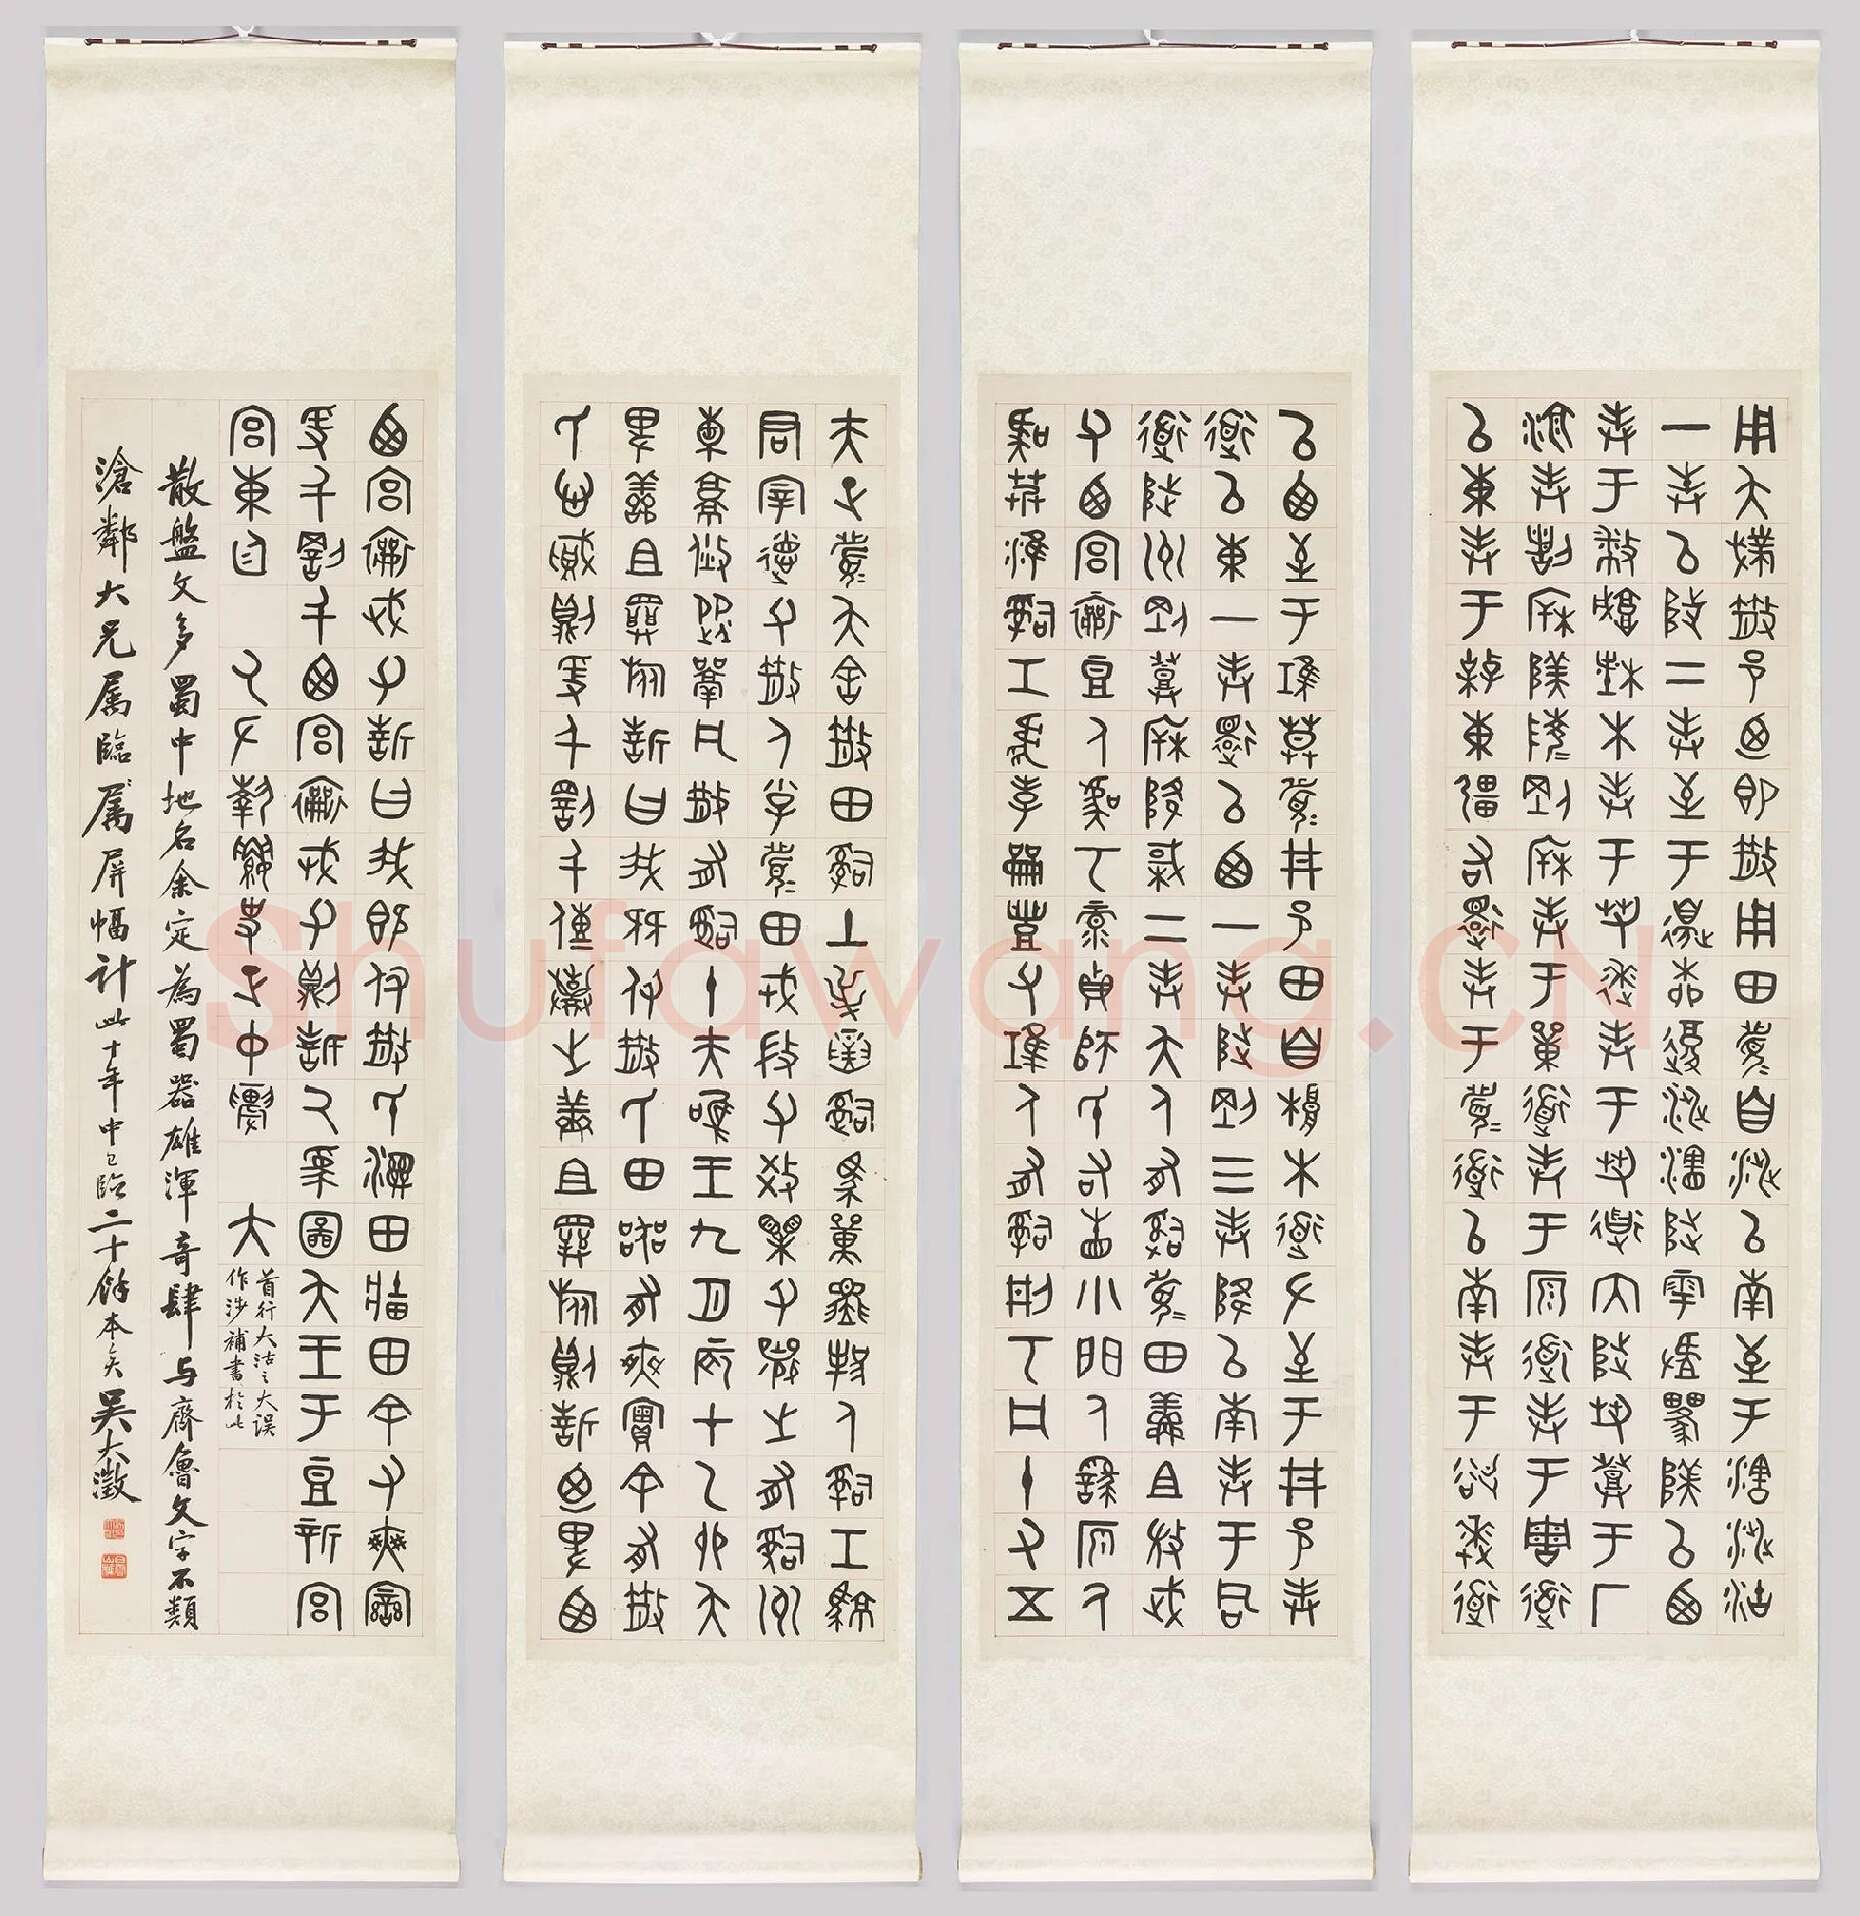 用夨𢦏散邑迺即散用田眉自以南至于涉沽
一封以陟二封至于邊柳復涉瀗陟雩𨻰以西
封于城木封于芻逨封于芻道內陟芻登于厂
湶封𣂪陵剛𣂪封于單道封于原道封于周道
以東封于東疆右還封于眉道以南封于逨道
以西至于堆莫眉井邑田自根木道左至于井邑封
道以東一封還以西一封陟剛三封降以南封于同
道陟州剛登𣂪降棫二封夨人有嗣眉田鮮且微武
父西宮襄豆人虞丂彔貞師氏右眚小門人繇原人
虞艿淮嗣工虎孝豐父堆人有嗣荊丂凡十又五
夫正眉夨舍散田嗣土逆寅嗣單邦人嗣工駷
君宰德父散人小子眉田戎微父效父襄之有嗣州
橐攸從鬲凡散有嗣十夫唯王九月辰在乙卯夨
俾鮮且旅誓曰我既付散氏田器有爽實余有散
氏心賊則鞭千罰千傳棄之鮮且旅則誓迺俾西
西宮襄武父誓曰我既付散氏濕田牆田余又爽變
鞭千罰千西宮襄武父則誓厥圖夨王于豆新宮
宮東廷 厥左執史正中農 大
首行大沽之大误
作涉補書於此
散盤文多蜀中地名余定為蜀器雄渾奇肆与齊魯文字不類
滄鄰大兄屬臨屏幅計此十年中已臨二十餘本矣吳大澂
Shufawang.CN